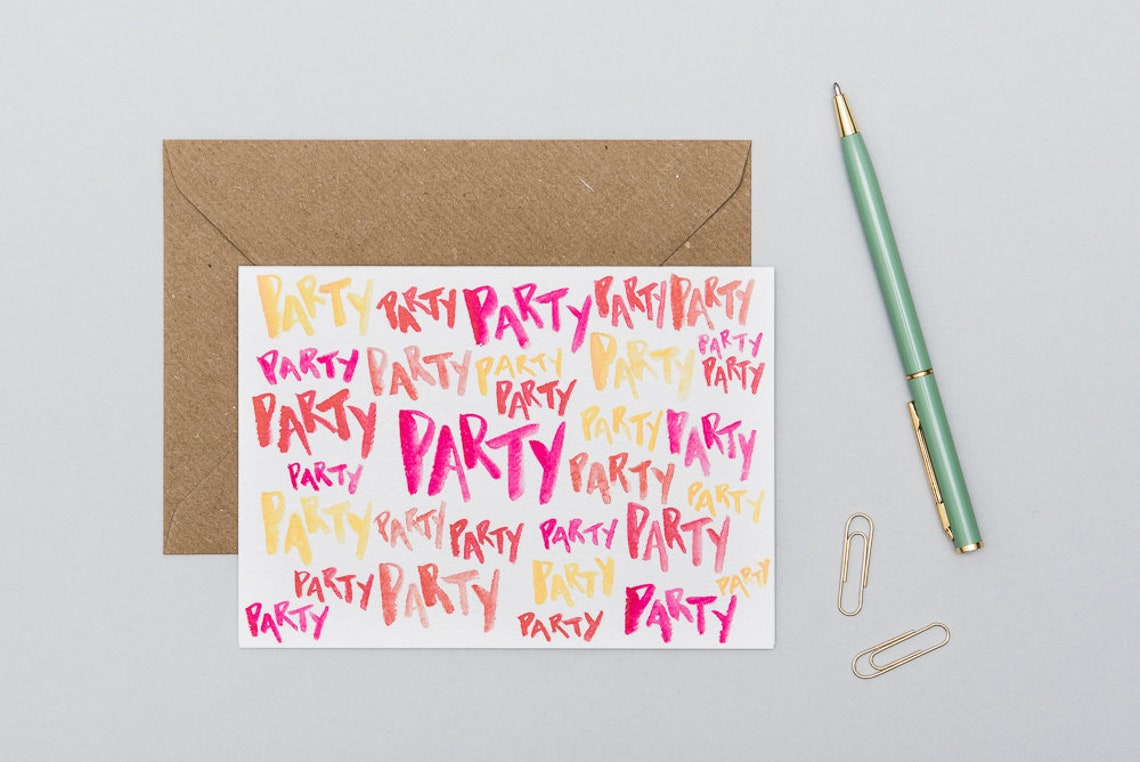 PARTY PARTY PARTY PARTY PARTY
PARTY PARTY PARTY PARTY PARTY
PARTY PARTY
PARTY PARTY PARTY PARTY
PARTY PARTY PARTY
PARTY PARTY PARTY PARTY PARTY
PARTY PARTY PARTY PARTY
PARTY PARTY PARTY